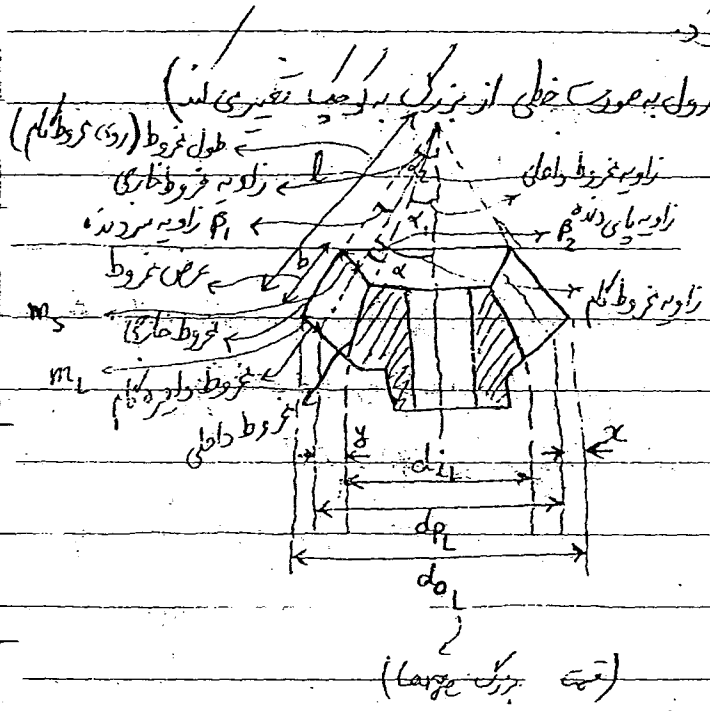 رول به صورت خطی از بزرگ به کوچک تغییر می کند)
طول مخروط (روی مخروط گام)
زاویه مخروط خارجی
β₁ زاویه سردنده
عرض مخروط
mₛ
مخروط خارجی
m_L
مخروط دایره گام
مخروط داخلی
l
b
α₂
α₁
α
زاویه مخروط داخلی
زاویه پای دنده β₂
زاویه مخروط گام
y
x
di_L
dp_L
do_L
(قسمت بزرگ Large)